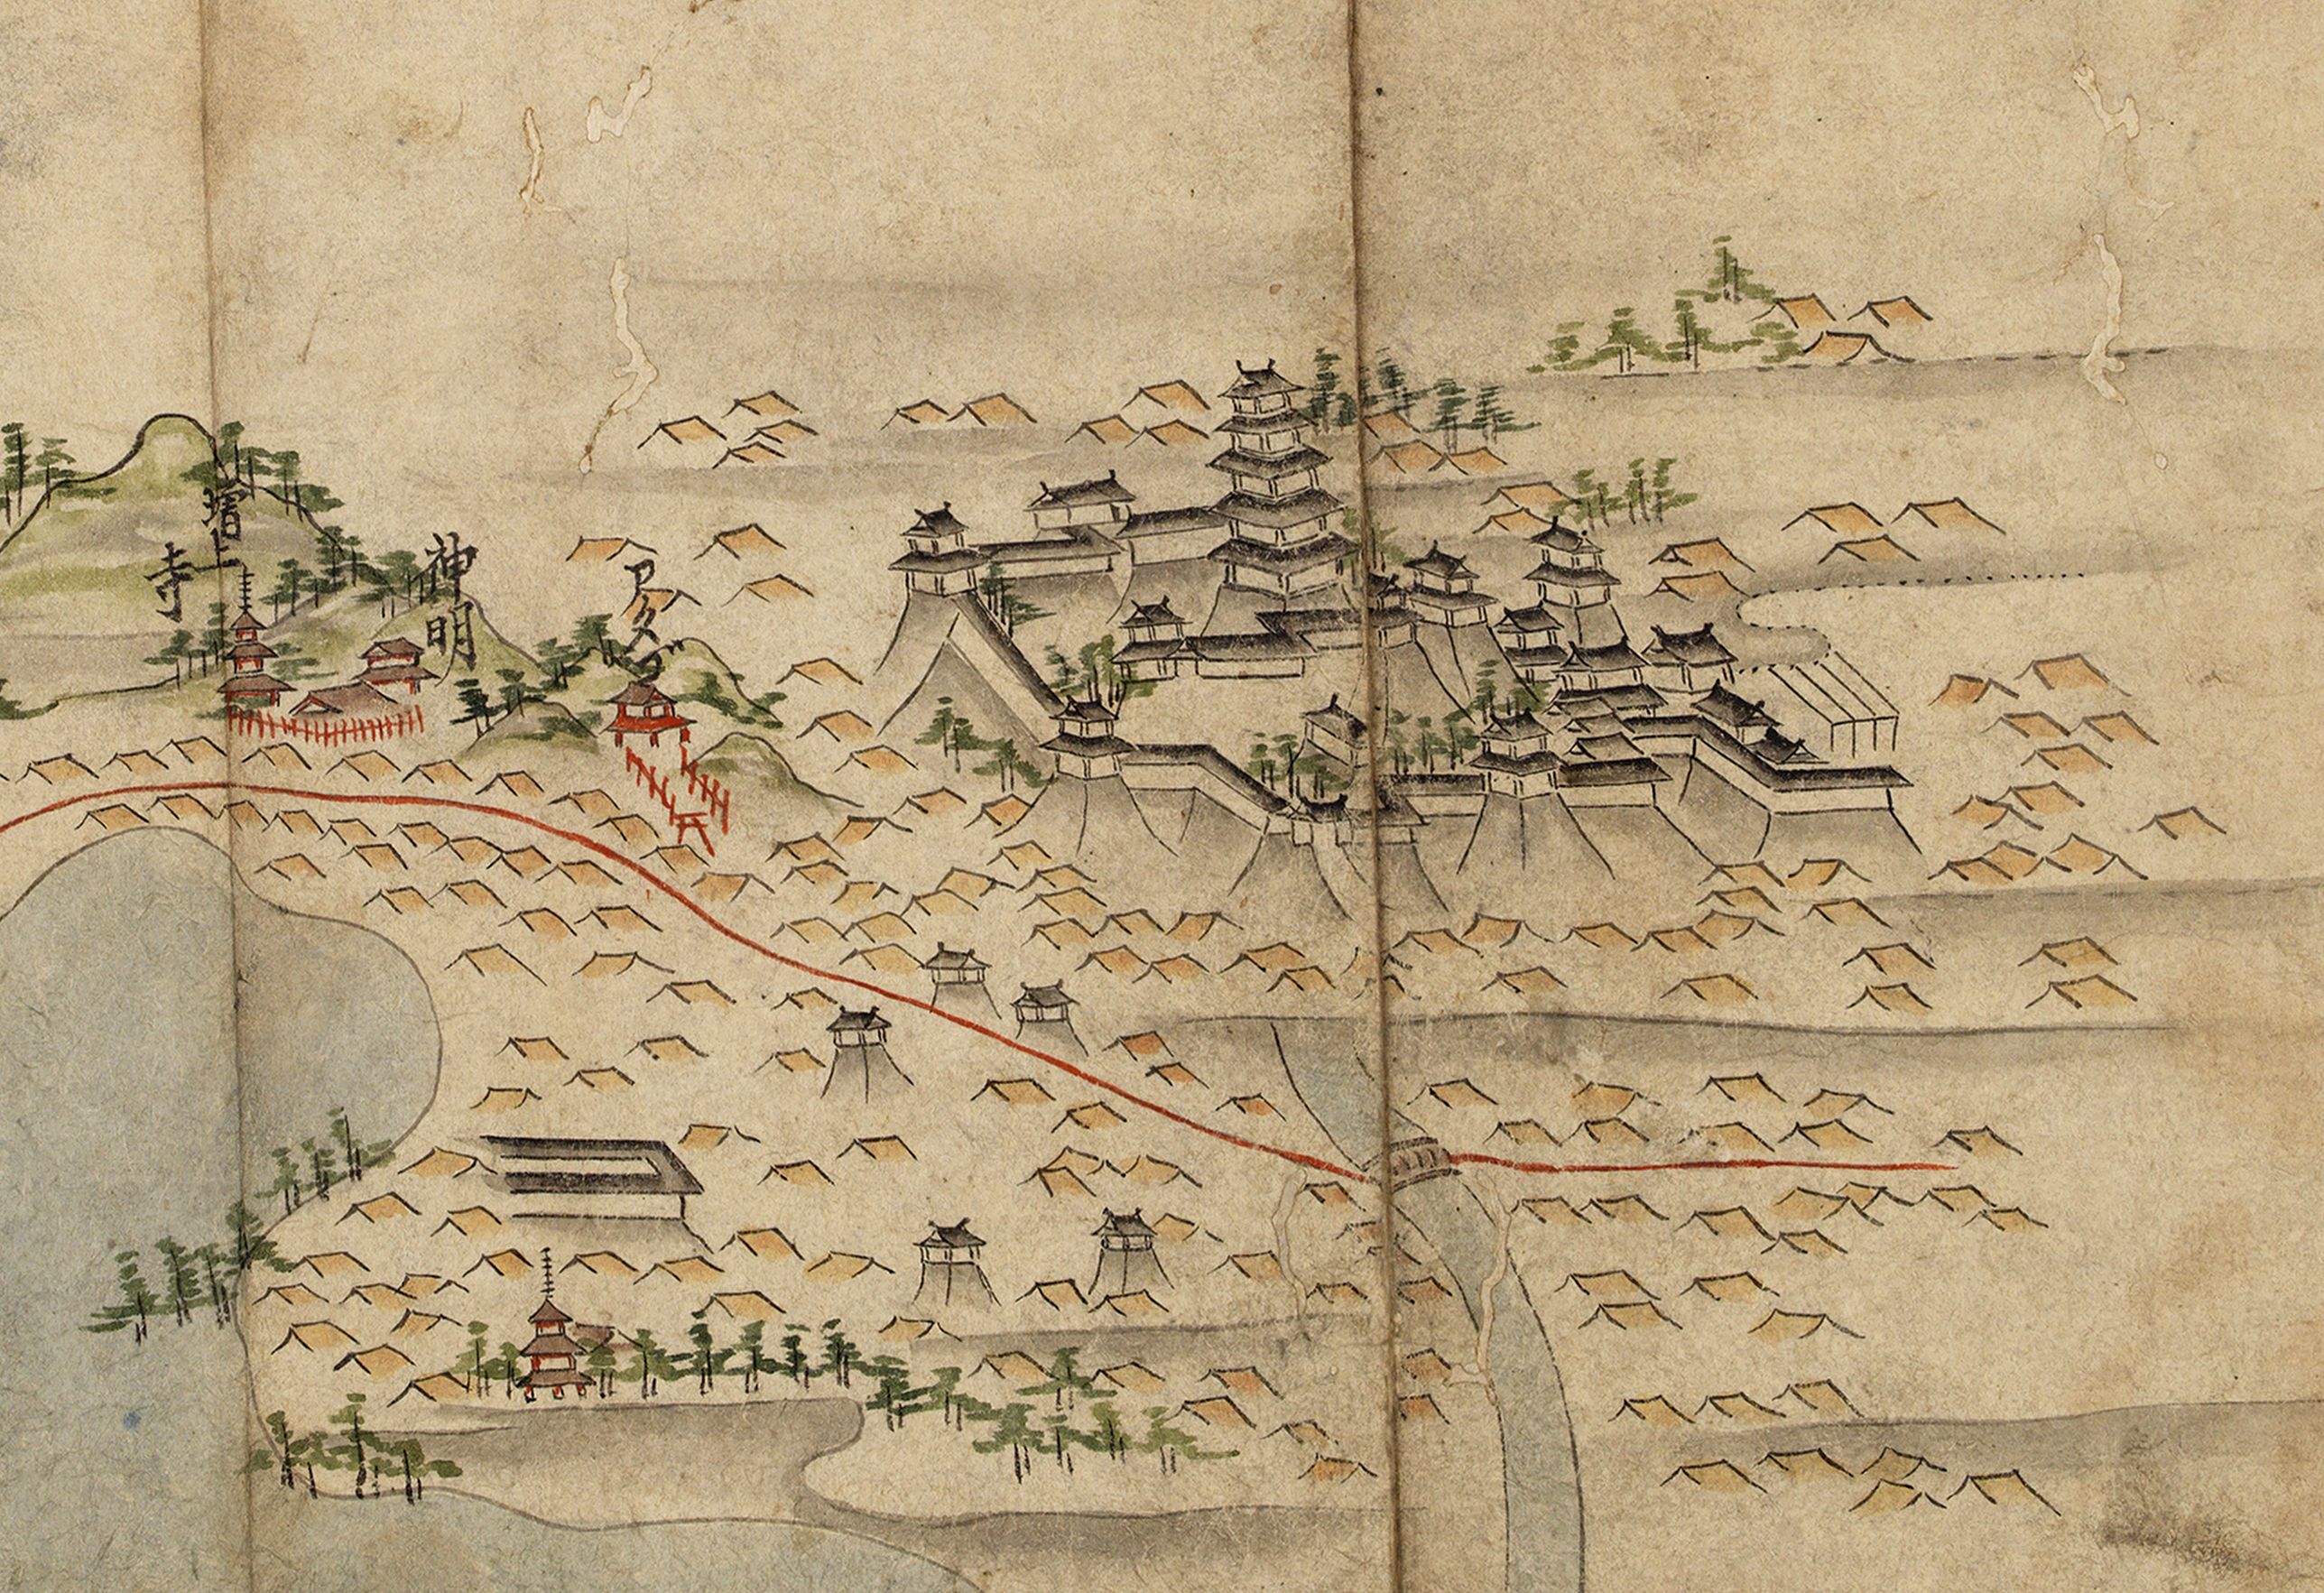 アタゴ
神明
増上
寺